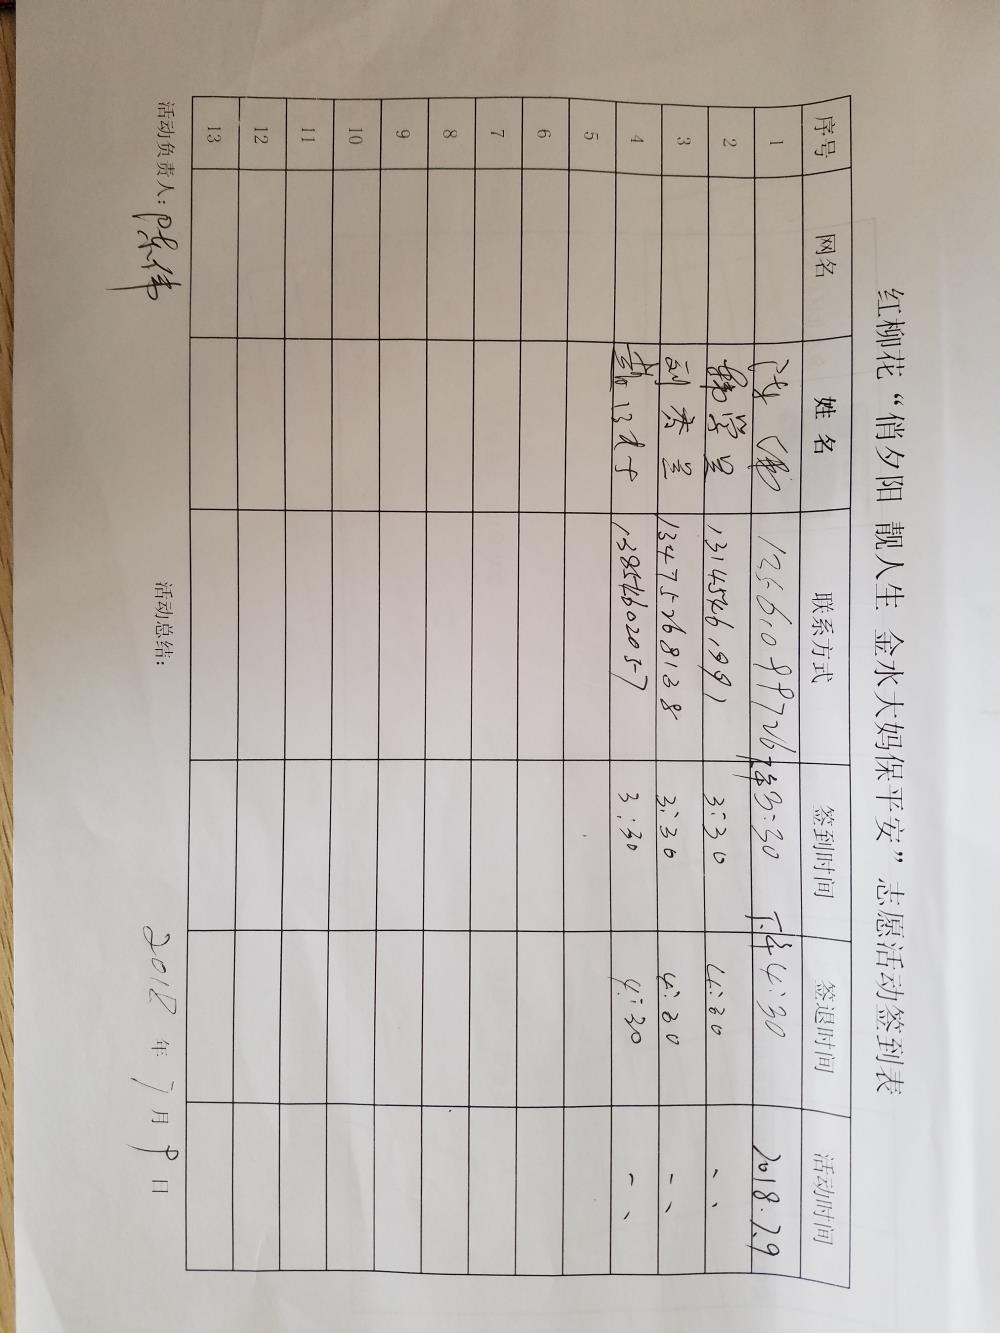 红柳花“俏夕阳 靓人生 金水大妈保平安”志愿活动签到表
序号 网名 姓名 联系方式 签到时间 签退时间 活动时间
1 13561099726 下午3:30 下午4:30 2018.7.9
2 13145461991 3:30 4:30 、、
3 刘秀兰 13475268138 3:30 4:30 、、
4 13854602057 3:30 4:30 、、
5
6
7
8
9
10
11
12
13
活动负责人：陈伟 活动总结： 2018年7月9日